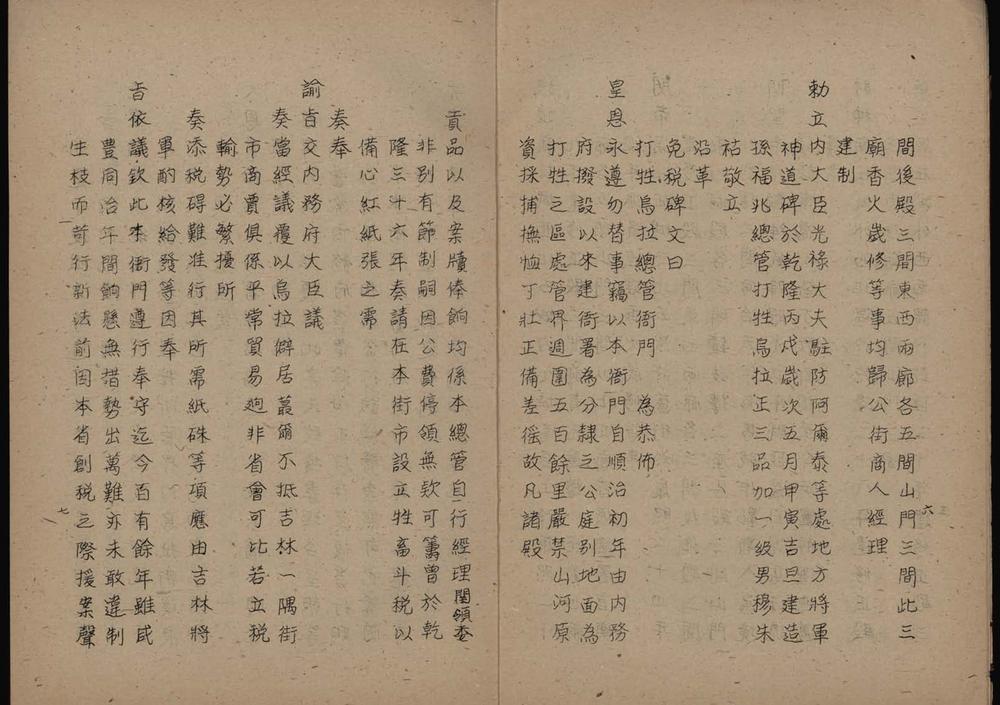 間後殿三間東西兩廊各五間山門三間此三
廟香火歲修等事均歸公街商人經理
建制
勅立內大臣光祿大夫駐防阿爾泰等處地方將軍
神道碑於乾隆丙戌歲次五月甲寅吉旦建造
孫福兆總管打牲烏拉正三品加一級男穆朱
祜敬立
沿革
免稅碑文曰
打牲烏拉總管衙門 為恭佈
皇恩永遵勿替事竊以本衙門自順治初年由內務
府撥設以來建衙署為分隸之公庭別地面為
打牲之區處管界週圍五百餘里嚴禁山河原
資採捕撫恤丁壯正備差徭故凡諸殿
六
貢品以及案牘俸餉均係本總管自行經理關領委
非別有節制嗣因公費停領無欵可籌曾於乾
隆三十六年奏請在本街市設立牲畜斗稅以
備心紅紙張之需
奏奉
諭旨交內務府大臣議
奏當經議覆以烏拉僻居蕞爾不抵吉林一隅街
市商賈俱係平常貿易迥非省會可比若立稅
輸勢必繁擾所
奏添稅碍難准行其所需紙硃等項應由吉林將
軍酌核給發等因奉
旨依議欽此本衙門遵行奉守迄今百有餘年雖咸
豐同治年間餉懸無措勢出萬難亦未敢違制
生枝而苛行新法前因本省創稅之際援案聲
七